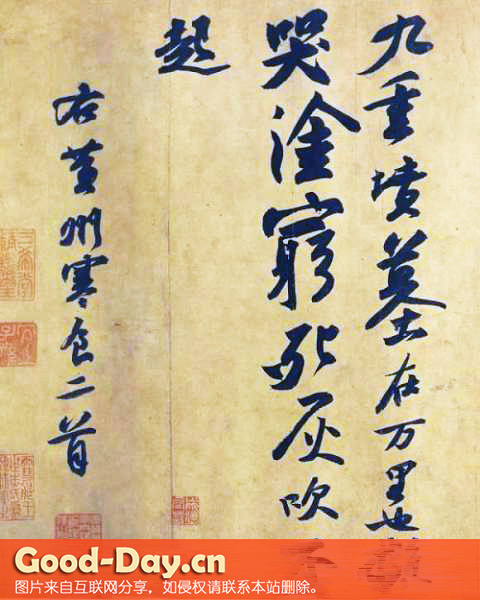 九重墳墓在万里也擬
哭塗窮死灰吹不
起
右黄州寒食二首
Good-Day.cn
图片来自互联网分享，如侵权请联系本站删除。